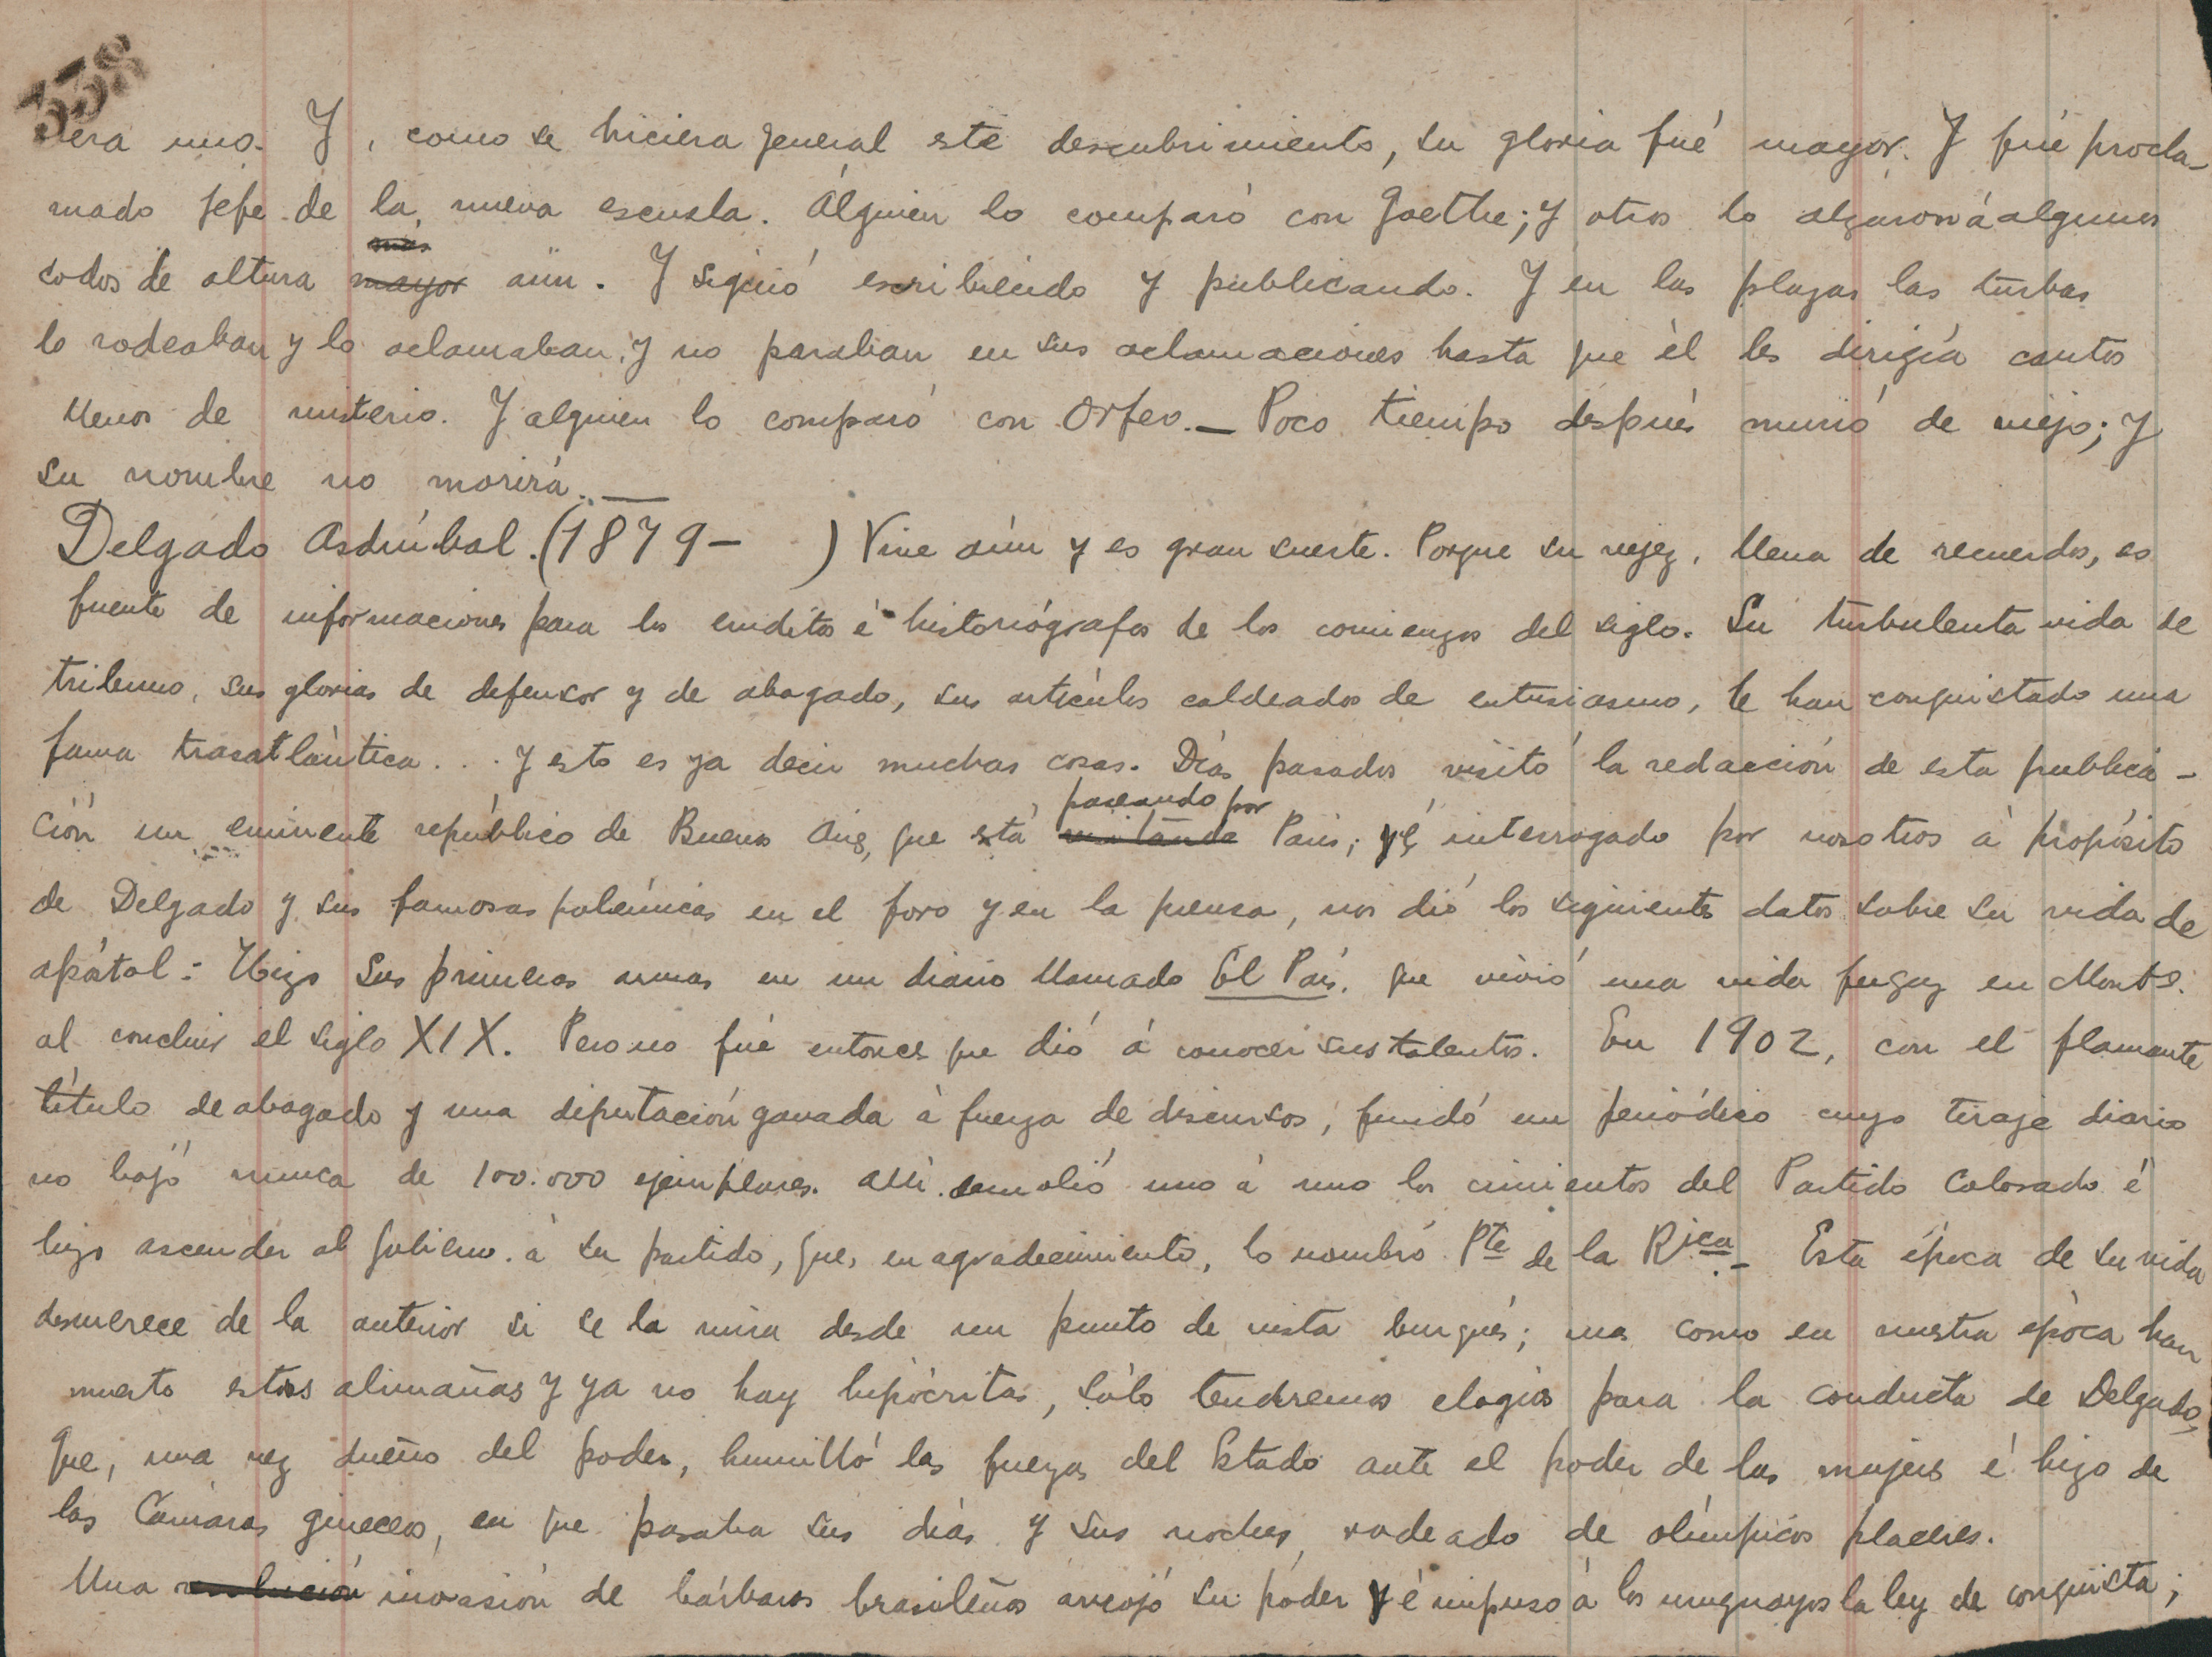 338
era uno. Y, como se hiciera general este descubrimiento, su gloria fué mayor. Y fué procla-
mado jefe de la nueva escuela. Álguien lo comparó con Goethe; y otros lo alzaron á algunos
codos de altura más mayor aún. Y siguió escribiendo y publicando. Y en las plazas las turbas
lo rodeaban y lo aclamaban; y no paraban en sus aclamaciones hasta que él les dirigía cantos
llenos de misterio. Y alguien lo comparó con Orfeo.— Poco tiempo después murió de viejo; y
su nombre no morirá.—
Delgado Asdrúbal. (1879- ) Vive aún y es gran suerte. Porque su vejez, llena de recuerdos, es
fuente de informaciones para los eruditos é historiógrafos de los comienzos del siglo. Su turbulenta vida de
tribuno, sus glorias de defensor y de abogado, sus artículos caldeados de entusiasmo, le han conquistado una
fama trasatlántica... y esto es ya decir muchas cosas. Días pasados visitó la redacción de esta publica-
ción un eminente repúblico de Buenos Aires, que está visitando paseando por París; y é interrogado por nosotros á propósito
de Delgado y sus famosas polémicas en el foro y en la prensa, nos dió los siguientes datos sobre su vida de
apóstol: Hizo sus primeras armas en un diario llamado El País, que vivió una vida fugaz en Montº.
al concluir el siglo XIX. Pero no fué entonces que dió á conocer sus talentos. En 1902, con el flamante
título de abogado y una diputación ganada á fuerza de discursos, fundó un periódico cuyo tiraje diario
no bajó nunca de 100.000 ejemplares. Allí demolió uno á uno los cimientos del Partido Colorado é
hizo ascender al gobierno á su partido, que, en agradecimiento, lo nombró Pte de la Rica.- Esta época de su vida
desmerece de la anterior si se la mira desde un punto de vista burgués; mas como en nuestra época han
muerto estas alimañas y ya no hay hipócritas, sólo tendremos elogios para la conducta de Delgado,
que, una vez dueño del poder, humilló las fuerzas del Estado ante el poder de las mujeres é hizo de
las Cámaras gineceos, en que pasaba sus días y sus noches, rodeado de olímpicos placeres.
Una revolución invasión de bárbaros brasileños arrojó su poder y é impuso á los uruguayos la ley de conquista;